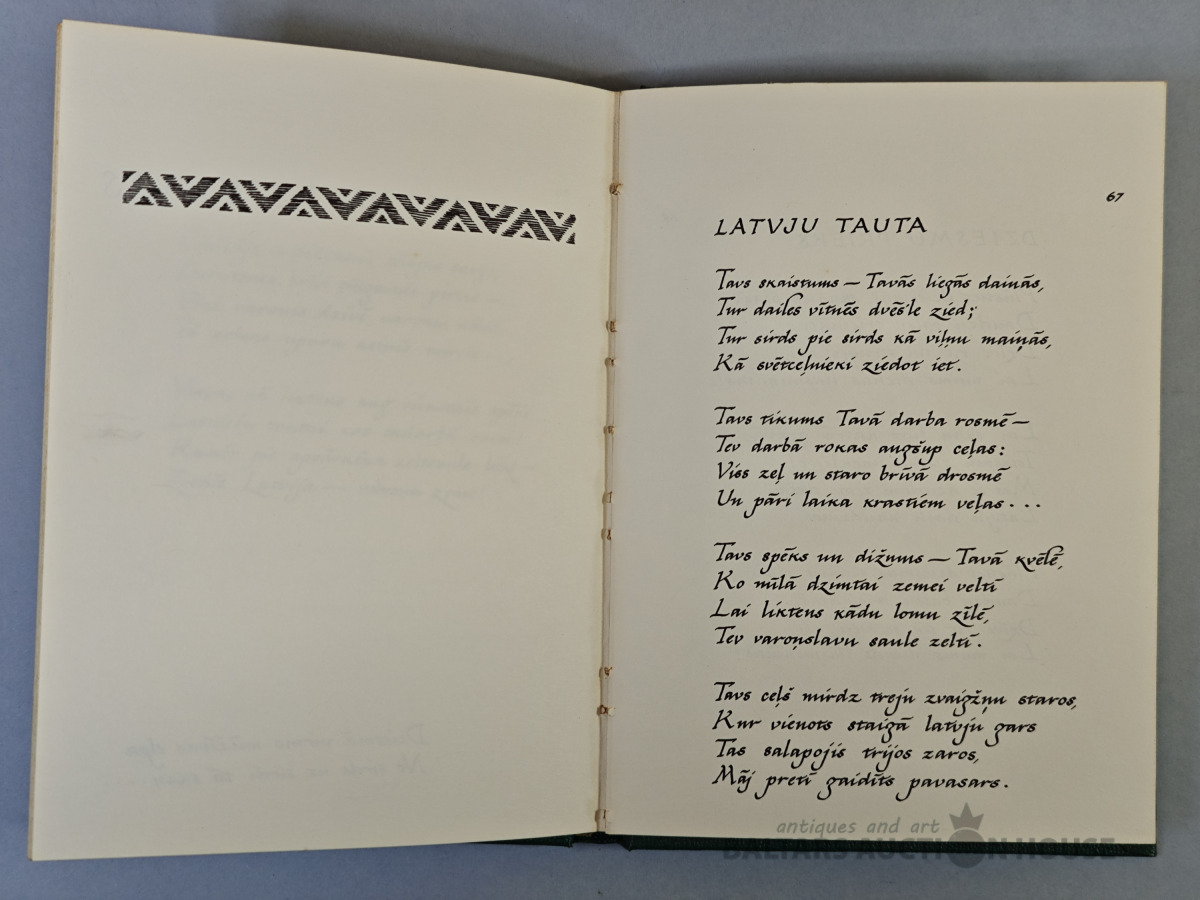 67
LATVJU TAUTA
Tavs skaistums — Tavās liegās dainās,
Tur dailes vītnēs dvēs'le zied;
Tur sirds pie sirds kā viļņu maiņās,
Kā svētceļnieki ziedot iet.
Tavs tikums Tavā darba rosmē —
Tev darbā rokas augšup ceļas:
Viss zeļ un staro brīvā drosmē
Un pāri laika krastiem veļas...
Tavs spēks un dižums — Tavā kvēlē,
Ko mīlā dzimtai zemei veltī
Lai liktens kādu lomu zīlē,
Tev varoņslavu saule zeltī.
Tavs ceļš mirdz treju zvaigžņu staros,
Kur vienots staigā latvju gars
Tas salapojis trijos zaros,
Māj pretī gaidīts pavasars.
antiques and art
BALTARS AUCTION HOUSE